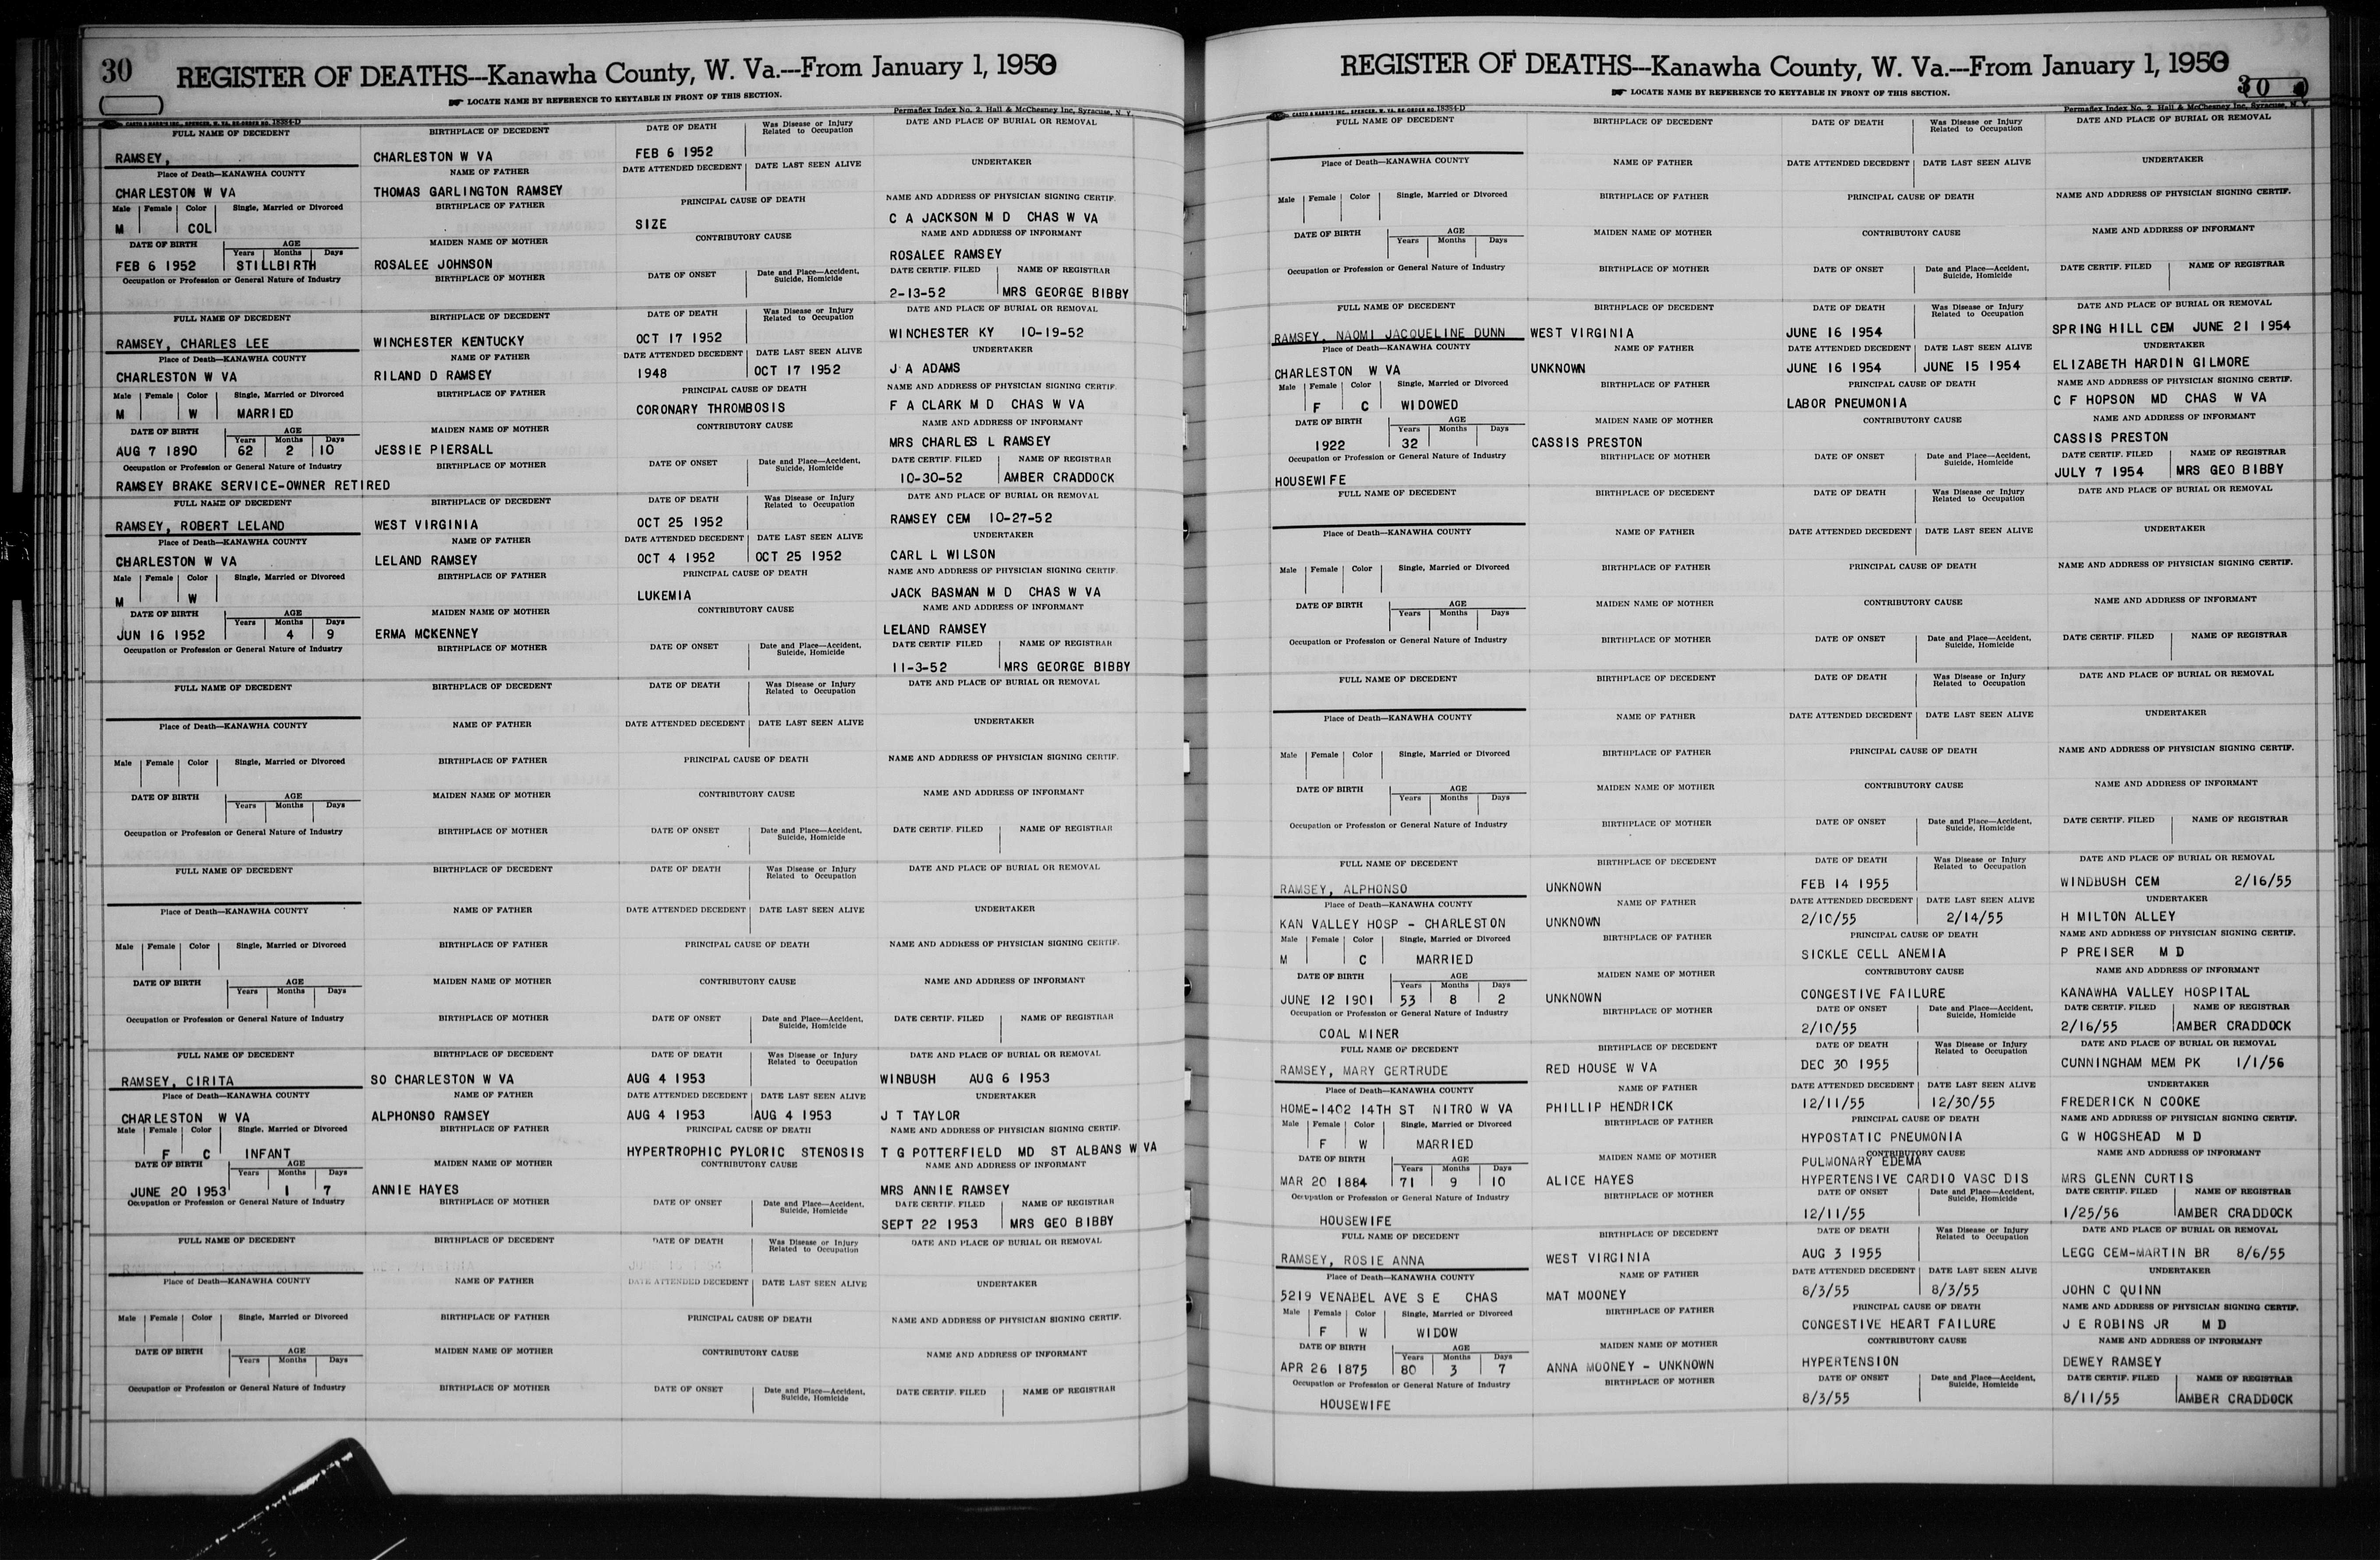 30
REGISTER OF DEATHS---Kanawha County, W. Va.---From January 1, 1950
LOCATE NAME BY REFERENCE TO KEYTABLE IN FRONT OF THIS SECTION.
CASTO & HARRIS INC., SPENCER, W. VA. RE-ORDER NO. 18354-D
Permaflex Index No. 2, Hall & McChesney Inc, Syracuse, N. Y.
FULL NAME OF DECEDENT BIRTHPLACE OF DECEDENT DATE OF DEATH Was Disease or Injury Related to Occupation DATE AND PLACE OF BURIAL OR REMOVAL
RAMSEY, CHARLESTON W VA FEB 6 1952
Place of Death—KANAWHA COUNTY NAME OF FATHER DATE ATTENDED DECEDENT DATE LAST SEEN ALIVE UNDERTAKER
CHARLESTON W VA THOMAS GARLINGTON RAMSEY
Male Female Color Single, Married or Divorced BIRTHPLACE OF FATHER PRINCIPAL CAUSE OF DEATH NAME AND ADDRESS OF PHYSICIAN SIGNING CERTIF.
M COL SIZE C A JACKSON M D CHAS W VA
DATE OF BIRTH AGE Years Months Days MAIDEN NAME OF MOTHER CONTRIBUTORY CAUSE NAME AND ADDRESS OF INFORMANT
FEB 6 1952 STILLBIRTH ROSALEE JOHNSON ROSALEE RAMSEY
Occupation or Profession or General Nature of Industry BIRTHPLACE OF MOTHER DATE OF ONSET Date and Place—Accident, Suicide, Homicide DATE CERTIF. FILED NAME OF REGISTRAR
2-13-52 MRS GEORGE BIBBY
FULL NAME OF DECEDENT BIRTHPLACE OF DECEDENT DATE OF DEATH Was Disease or Injury Related to Occupation DATE AND PLACE OF BURIAL OR REMOVAL
RAMSEY, CHARLES LEE WINCHESTER KENTUCKY OCT 17 1952 WINCHESTER KY 10-19-52
Place of Death—KANAWHA COUNTY NAME OF FATHER DATE ATTENDED DECEDENT DATE LAST SEEN ALIVE UNDERTAKER
CHARLESTON W VA RILAND D RAMSEY 1948 OCT 17 1952 J A ADAMS
Male Female Color Single, Married or Divorced BIRTHPLACE OF FATHER PRINCIPAL CAUSE OF DEATH NAME AND ADDRESS OF PHYSICIAN SIGNING CERTIF.
M W MARRIED CORONARY THROMBOSIS F A CLARK M D CHAS W VA
DATE OF BIRTH AGE Years Months Days MAIDEN NAME OF MOTHER CONTRIBUTORY CAUSE NAME AND ADDRESS OF INFORMANT
AUG 7 1890 62 2 10 JESSIE PIERSALL MRS CHARLES L RAMSEY
Occupation or Profession or General Nature of Industry BIRTHPLACE OF MOTHER DATE OF ONSET Date and Place—Accident, Suicide, Homicide DATE CERTIF. FILED NAME OF REGISTRAR
RAMSEY BRAKE SERVICE-OWNER RETIRED 10-30-52 AMBER CRADDOCK
FULL NAME OF DECEDENT BIRTHPLACE OF DECEDENT DATE OF DEATH Was Disease or Injury Related to Occupation DATE AND PLACE OF BURIAL OR REMOVAL
RAMSEY, ROBERT LELAND WEST VIRGINIA OCT 25 1952 RAMSEY CEM 10-27-52
Place of Death—KANAWHA COUNTY NAME OF FATHER DATE ATTENDED DECEDENT DATE LAST SEEN ALIVE UNDERTAKER
CHARLESTON W VA LELAND RAMSEY OCT 4 1952 OCT 25 1952 CARL L WILSON
Male Female Color Single, Married or Divorced BIRTHPLACE OF FATHER PRINCIPAL CAUSE OF DEATH NAME AND ADDRESS OF PHYSICIAN SIGNING CERTIF.
M W LUKEMIA JACK BASMAN M D CHAS W VA
DATE OF BIRTH AGE Years Months Days MAIDEN NAME OF MOTHER CONTRIBUTORY CAUSE NAME AND ADDRESS OF INFORMANT
JUN 16 1952 4 9 ERMA MCKENNEY LELAND RAMSEY
Occupation or Profession or General Nature of Industry BIRTHPLACE OF MOTHER DATE OF ONSET Date and Place—Accident, Suicide, Homicide DATE CERTIF. FILED NAME OF REGISTRAR
11-3-52 MRS GEORGE BIBBY
FULL NAME OF DECEDENT BIRTHPLACE OF DECEDENT DATE OF DEATH Was Disease or Injury Related to Occupation DATE AND PLACE OF BURIAL OR REMOVAL
Place of Death—KANAWHA COUNTY NAME OF FATHER DATE ATTENDED DECEDENT DATE LAST SEEN ALIVE UNDERTAKER
Male Female Color Single, Married or Divorced BIRTHPLACE OF FATHER PRINCIPAL CAUSE OF DEATH NAME AND ADDRESS OF PHYSICIAN SIGNING CERTIF.
DATE OF BIRTH AGE Years Months Days MAIDEN NAME OF MOTHER CONTRIBUTORY CAUSE NAME AND ADDRESS OF INFORMANT
Occupation or Profession or General Nature of Industry BIRTHPLACE OF MOTHER DATE OF ONSET Date and Place—Accident, Suicide, Homicide DATE CERTIF. FILED NAME OF REGISTRAR
FULL NAME OF DECEDENT BIRTHPLACE OF DECEDENT DATE OF DEATH Was Disease or Injury Related to Occupation DATE AND PLACE OF BURIAL OR REMOVAL
Place of Death—KANAWHA COUNTY NAME OF FATHER DATE ATTENDED DECEDENT DATE LAST SEEN ALIVE UNDERTAKER
Male Female Color Single, Married or Divorced BIRTHPLACE OF FATHER PRINCIPAL CAUSE OF DEATH NAME AND ADDRESS OF PHYSICIAN SIGNING CERTIF.
DATE OF BIRTH AGE Years Months Days MAIDEN NAME OF MOTHER CONTRIBUTORY CAUSE NAME AND ADDRESS OF INFORMANT
Occupation or Profession or General Nature of Industry BIRTHPLACE OF MOTHER DATE OF ONSET Date and Place—Accident, Suicide, Homicide DATE CERTIF. FILED NAME OF REGISTRAR
FULL NAME OF DECEDENT BIRTHPLACE OF DECEDENT DATE OF DEATH Was Disease or Injury Related to Occupation DATE AND PLACE OF BURIAL OR REMOVAL
RAMSEY, CIRITA SO CHARLESTON W VA AUG 4 1953 WINBUSH AUG 6 1953
Place of Death—KANAWHA COUNTY NAME OF FATHER DATE ATTENDED DECEDENT DATE LAST SEEN ALIVE UNDERTAKER
CHARLESTON W VA ALPHONSO RAMSEY AUG 4 1953 AUG 4 1953 J T TAYLOR
Male Female Color Single, Married or Divorced BIRTHPLACE OF FATHER PRINCIPAL CAUSE OF DEATH NAME AND ADDRESS OF PHYSICIAN SIGNING CERTIF.
F C INFANT HYPERTROPHIC PYLORIC STENOSIS T G POTTERFIELD MD ST ALBANS W VA
DATE OF BIRTH AGE Years Months Days MAIDEN NAME OF MOTHER CONTRIBUTORY CAUSE NAME AND ADDRESS OF INFORMANT
JUNE 20 1953 1 7 ANNIE HAYES MRS ANNIE RAMSEY
Occupation or Profession or General Nature of Industry BIRTHPLACE OF MOTHER DATE OF ONSET Date and Place—Accident, Suicide, Homicide DATE CERTIF. FILED NAME OF REGISTRAR
SEPT 22 1953 MRS GEO BIBBY
FULL NAME OF DECEDENT BIRTHPLACE OF DECEDENT DATE OF DEATH Was Disease or Injury Related to Occupation DATE AND PLACE OF BURIAL OR REMOVAL
Place of Death—KANAWHA COUNTY NAME OF FATHER DATE ATTENDED DECEDENT DATE LAST SEEN ALIVE UNDERTAKER
Male Female Color Single, Married or Divorced BIRTHPLACE OF FATHER PRINCIPAL CAUSE OF DEATH NAME AND ADDRESS OF PHYSICIAN SIGNING CERTIF.
DATE OF BIRTH AGE Years Months Days MAIDEN NAME OF MOTHER CONTRIBUTORY CAUSE NAME AND ADDRESS OF INFORMANT
Occupation or Profession or General Nature of Industry BIRTHPLACE OF MOTHER DATE OF ONSET Date and Place—Accident, Suicide, Homicide DATE CERTIF. FILED NAME OF REGISTRAR
REGISTER OF DEATHS---Kanawha County, W. Va.---From January 1, 1950
30
LOCATE NAME BY REFERENCE TO KEYTABLE IN FRONT OF THIS SECTION.
CASTO & HARRIS INC., SPENCER, W. VA. RE-ORDER NO. 18354-D
Permaflex Index No. 2, Hall & McChesney Inc, Syracuse, N. Y.
FULL NAME OF DECEDENT BIRTHPLACE OF DECEDENT DATE OF DEATH Was Disease or Injury Related to Occupation DATE AND PLACE OF BURIAL OR REMOVAL
Place of Death—KANAWHA COUNTY NAME OF FATHER DATE ATTENDED DECEDENT DATE LAST SEEN ALIVE UNDERTAKER
Male Female Color Single, Married or Divorced BIRTHPLACE OF FATHER PRINCIPAL CAUSE OF DEATH NAME AND ADDRESS OF PHYSICIAN SIGNING CERTIF.
DATE OF BIRTH AGE Years Months Days MAIDEN NAME OF MOTHER CONTRIBUTORY CAUSE NAME AND ADDRESS OF INFORMANT
Occupation or Profession or General Nature of Industry BIRTHPLACE OF MOTHER DATE OF ONSET Date and Place—Accident, Suicide, Homicide DATE CERTIF. FILED NAME OF REGISTRAR
FULL NAME OF DECEDENT BIRTHPLACE OF DECEDENT DATE OF DEATH Was Disease or Injury Related to Occupation DATE AND PLACE OF BURIAL OR REMOVAL
RAMSEY, NAOMI JACQUELINE DUNN WEST VIRGINIA JUNE 16 1954 SPRING HILL CEM JUNE 21 1954
Place of Death—KANAWHA COUNTY NAME OF FATHER DATE ATTENDED DECEDENT DATE LAST SEEN ALIVE UNDERTAKER
CHARLESTON W VA UNKNOWN JUNE 16 1954 JUNE 15 1954 ELIZABETH HARDIN GILMORE
Male Female Color Single, Married or Divorced BIRTHPLACE OF FATHER PRINCIPAL CAUSE OF DEATH NAME AND ADDRESS OF PHYSICIAN SIGNING CERTIF.
F C WIDOWED LABOR PNEUMONIA C F HOPSON MD CHAS W VA
DATE OF BIRTH AGE Years Months Days MAIDEN NAME OF MOTHER CONTRIBUTORY CAUSE NAME AND ADDRESS OF INFORMANT
1922 32 CASSIS PRESTON CASSIS PRESTON
Occupation or Profession or General Nature of Industry BIRTHPLACE OF MOTHER DATE OF ONSET Date and Place—Accident, Suicide, Homicide DATE CERTIF. FILED NAME OF REGISTRAR
HOUSEWIFE JULY 7 1954 MRS GEO BIBBY
FULL NAME OF DECEDENT BIRTHPLACE OF DECEDENT DATE OF DEATH Was Disease or Injury Related to Occupation DATE AND PLACE OF BURIAL OR REMOVAL
Place of Death—KANAWHA COUNTY NAME OF FATHER DATE ATTENDED DECEDENT DATE LAST SEEN ALIVE UNDERTAKER
Male Female Color Single, Married or Divorced BIRTHPLACE OF FATHER PRINCIPAL CAUSE OF DEATH NAME AND ADDRESS OF PHYSICIAN SIGNING CERTIF.
DATE OF BIRTH AGE Years Months Days MAIDEN NAME OF MOTHER CONTRIBUTORY CAUSE NAME AND ADDRESS OF INFORMANT
Occupation or Profession or General Nature of Industry BIRTHPLACE OF MOTHER DATE OF ONSET Date and Place—Accident, Suicide, Homicide DATE CERTIF. FILED NAME OF REGISTRAR
FULL NAME OF DECEDENT BIRTHPLACE OF DECEDENT DATE OF DEATH Was Disease or Injury Related to Occupation DATE AND PLACE OF BURIAL OR REMOVAL
Place of Death—KANAWHA COUNTY NAME OF FATHER DATE ATTENDED DECEDENT DATE LAST SEEN ALIVE UNDERTAKER
Male Female Color Single, Married or Divorced BIRTHPLACE OF FATHER PRINCIPAL CAUSE OF DEATH NAME AND ADDRESS OF PHYSICIAN SIGNING CERTIF.
DATE OF BIRTH AGE Years Months Days MAIDEN NAME OF MOTHER CONTRIBUTORY CAUSE NAME AND ADDRESS OF INFORMANT
Occupation or Profession or General Nature of Industry BIRTHPLACE OF MOTHER DATE OF ONSET Date and Place—Accident, Suicide, Homicide DATE CERTIF. FILED NAME OF REGISTRAR
FULL NAME OF DECEDENT BIRTHPLACE OF DECEDENT DATE OF DEATH Was Disease or Injury Related to Occupation DATE AND PLACE OF BURIAL OR REMOVAL
RAMSEY, ALPHONSO UNKNOWN FEB 14 1955 WINDBUSH CEM 2/16/55
Place of Death—KANAWHA COUNTY NAME OF FATHER DATE ATTENDED DECEDENT DATE LAST SEEN ALIVE UNDERTAKER
KAN VALLEY HOSP - CHARLESTON UNKNOWN 2/10/55 2/14/55 H MILTON ALLEY
Male Female Color Single, Married or Divorced BIRTHPLACE OF FATHER PRINCIPAL CAUSE OF DEATH NAME AND ADDRESS OF PHYSICIAN SIGNING CERTIF.
M C MARRIED SICKLE CELL ANEMIA P PREISER M D
DATE OF BIRTH AGE Years Months Days MAIDEN NAME OF MOTHER CONTRIBUTORY CAUSE NAME AND ADDRESS OF INFORMANT
JUNE 12 1901 53 8 2 UNKNOWN CONGESTIVE FAILURE KANAWHA VALLEY HOSPITAL
Occupation or Profession or General Nature of Industry BIRTHPLACE OF MOTHER DATE OF ONSET Date and Place—Accident, Suicide, Homicide DATE CERTIF. FILED NAME OF REGISTRAR
COAL MINER 2/10/55 2/16/55 AMBER CRADDOCK
FULL NAME OF DECEDENT BIRTHPLACE OF DECEDENT DATE OF DEATH Was Disease or Injury Related to Occupation DATE AND PLACE OF BURIAL OR REMOVAL
RAMSEY, MARY GERTRUDE RED HOUSE W VA DEC 30 1955 CUNNINGHAM MEM PK 1/1/56
Place of Death—KANAWHA COUNTY NAME OF FATHER DATE ATTENDED DECEDENT DATE LAST SEEN ALIVE UNDERTAKER
HOME-1402 14TH ST NITRO W VA PHILLIP HENDRICK 12/11/55 12/30/55 FREDERICK N COOKE
Male Female Color Single, Married or Divorced BIRTHPLACE OF FATHER PRINCIPAL CAUSE OF DEATH NAME AND ADDRESS OF PHYSICIAN SIGNING CERTIF.
F W MARRIED HYPOSTATIC PNEUMONIA G W HOGSHEAD M D
PULMONARY EDEMA
DATE OF BIRTH AGE Years Months Days MAIDEN NAME OF MOTHER CONTRIBUTORY CAUSE NAME AND ADDRESS OF INFORMANT
MAR 20 1884 71 9 10 ALICE HAYES HYPERTENSIVE CARDIO VASC DIS MRS GLENN CURTIS
Occupation or Profession or General Nature of Industry BIRTHPLACE OF MOTHER DATE OF ONSET Date and Place—Accident, Suicide, Homicide DATE CERTIF. FILED NAME OF REGISTRAR
HOUSEWIFE 12/11/55 1/25/56 AMBER CRADDOCK
FULL NAME OF DECEDENT BIRTHPLACE OF DECEDENT DATE OF DEATH Was Disease or Injury Related to Occupation DATE AND PLACE OF BURIAL OR REMOVAL
RAMSEY, ROSIE ANNA WEST VIRGINIA AUG 3 1955 LEGG CEM-MARTIN BR 8/6/55
Place of Death—KANAWHA COUNTY NAME OF FATHER DATE ATTENDED DECEDENT DATE LAST SEEN ALIVE UNDERTAKER
5219 VENABEL AVE S E CHAS MAT MOONEY 8/3/55 8/3/55 JOHN C QUINN
Male Female Color Single, Married or Divorced BIRTHPLACE OF FATHER PRINCIPAL CAUSE OF DEATH NAME AND ADDRESS OF PHYSICIAN SIGNING CERTIF.
F W WIDOW CONGESTIVE HEART FAILURE J E ROBINS JR M D
DATE OF BIRTH AGE Years Months Days MAIDEN NAME OF MOTHER CONTRIBUTORY CAUSE NAME AND ADDRESS OF INFORMANT
APR 26 1875 80 3 7 ANNA MOONEY - UNKNOWN HYPERTENSION DEWEY RAMSEY
Occupation or Profession or General Nature of Industry BIRTHPLACE OF MOTHER DATE OF ONSET Date and Place—Accident, Suicide, Homicide DATE CERTIF. FILED NAME OF REGISTRAR
HOUSEWIFE 8/3/55 8/11/55 AMBER CRADDOCK